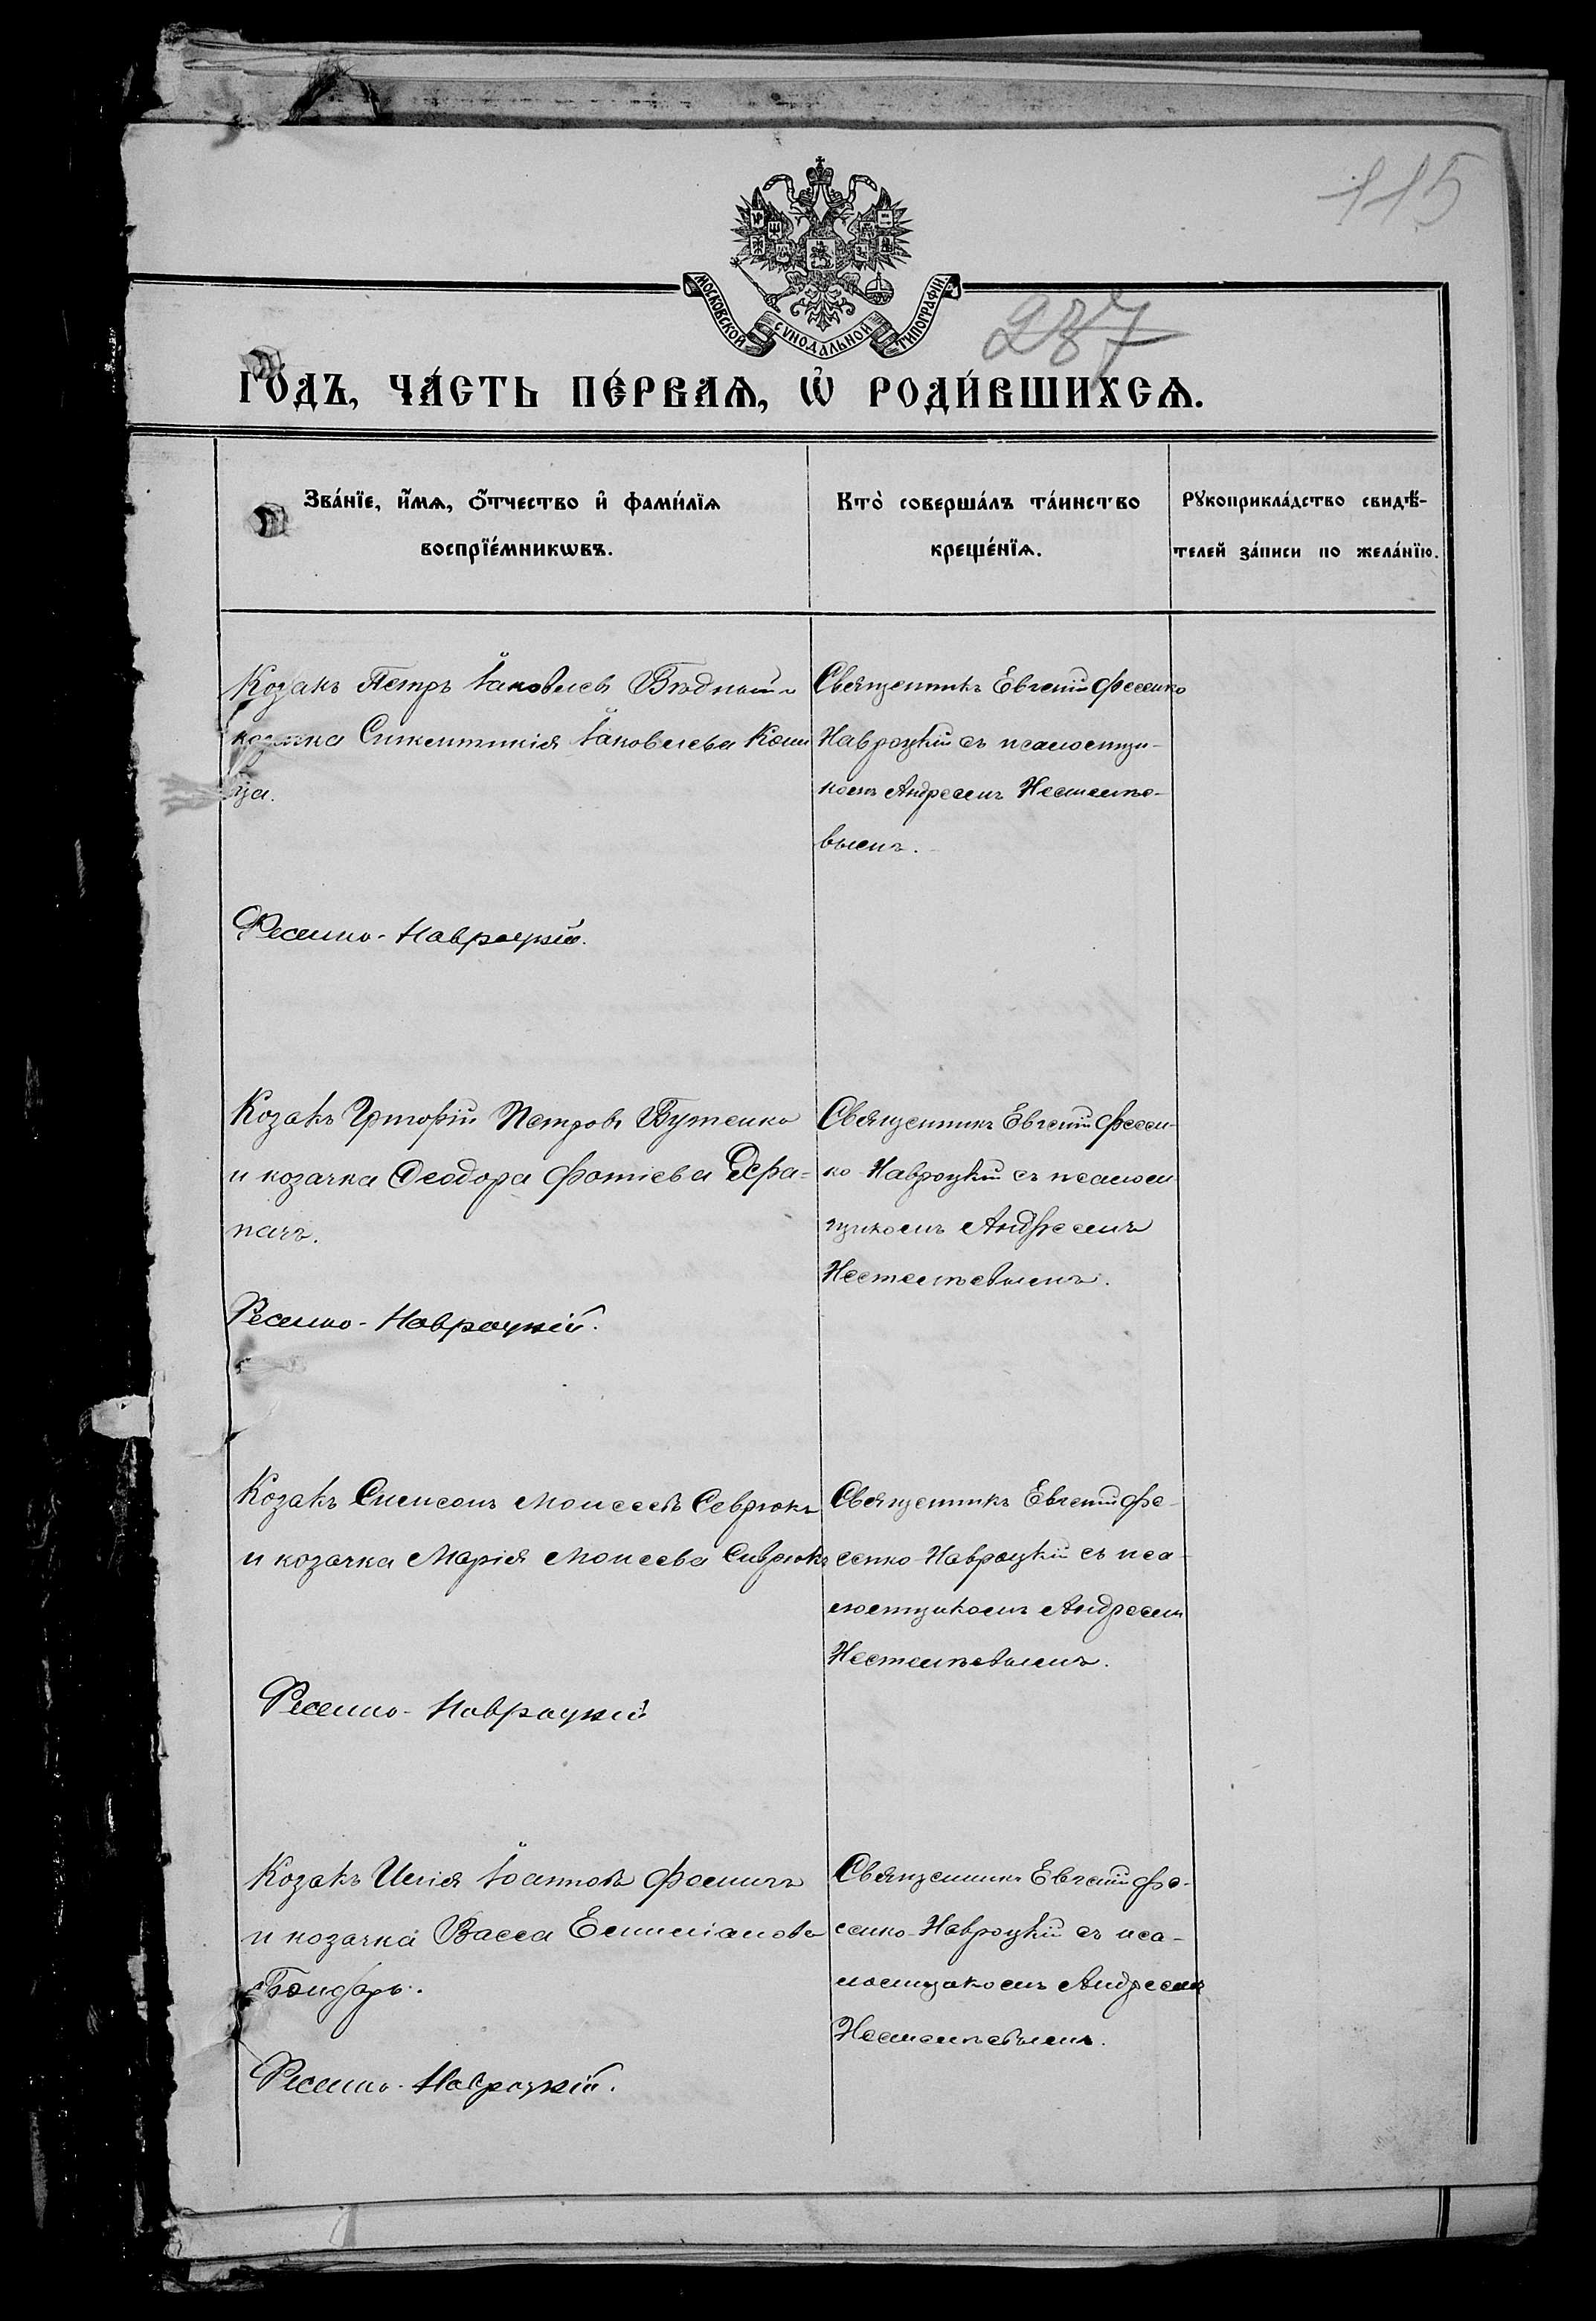 115
МОСКОВСКОЙ СѴНОДАЛЬНОЙ ТИПОГРАФІИ.
287
ГО́ДЪ, ЧА́СТЬ ПЕ́РВАѦ, Ѡ҆ РОДИ́ВШИХСѦ.
Зва́нїе, и҆́мѧ, ѻ҆́тчество и҆ фами́лїѧ
воспрїе́мникѡвъ.
Кто̀ соверша́лъ та́инство
креще́нїѧ.
Рꙋкоприкла́дство свидѣ́-
телей за́писи по жела́нїю.
Козакъ Петръ Іаковлевъ Бѣдный и
козачка Синклитикія Іаковлева
Священникъ Евгеній Фесенко
Навроцкій съ псаломщи-
комъ Андреемъ
вымъ.
Фесенко-Навроцкій.
Козакъ Григорій Петровъ Бутенко
и козачка Ѳеодора Фотіева Дера-
пачъ.
Священникъ Евгеній Фесен-
ко-Навроцкій съ псаломъ
щикомъ Андреемъ
Фесенко-Навроцкій.
Козакъ Симеонъ Моисеевъ Севрюкъ
и козачка Марія Моисеева Севрюкъ
Священникъ Евгеній Фе-
сенко-Навроцкій съ пса-
ломщикомъ Андреемъ
Фесенко-Навроцкій
Козакъ Илія Іоанновъ Фоминъ
и козачка Васса Емиліанова
Бондарь.
Священникъ Евгеній Фе-
сенко-Навроцкій съ пса-
ломщикомъ Андреемъ
Фесенко-Навроцкій.